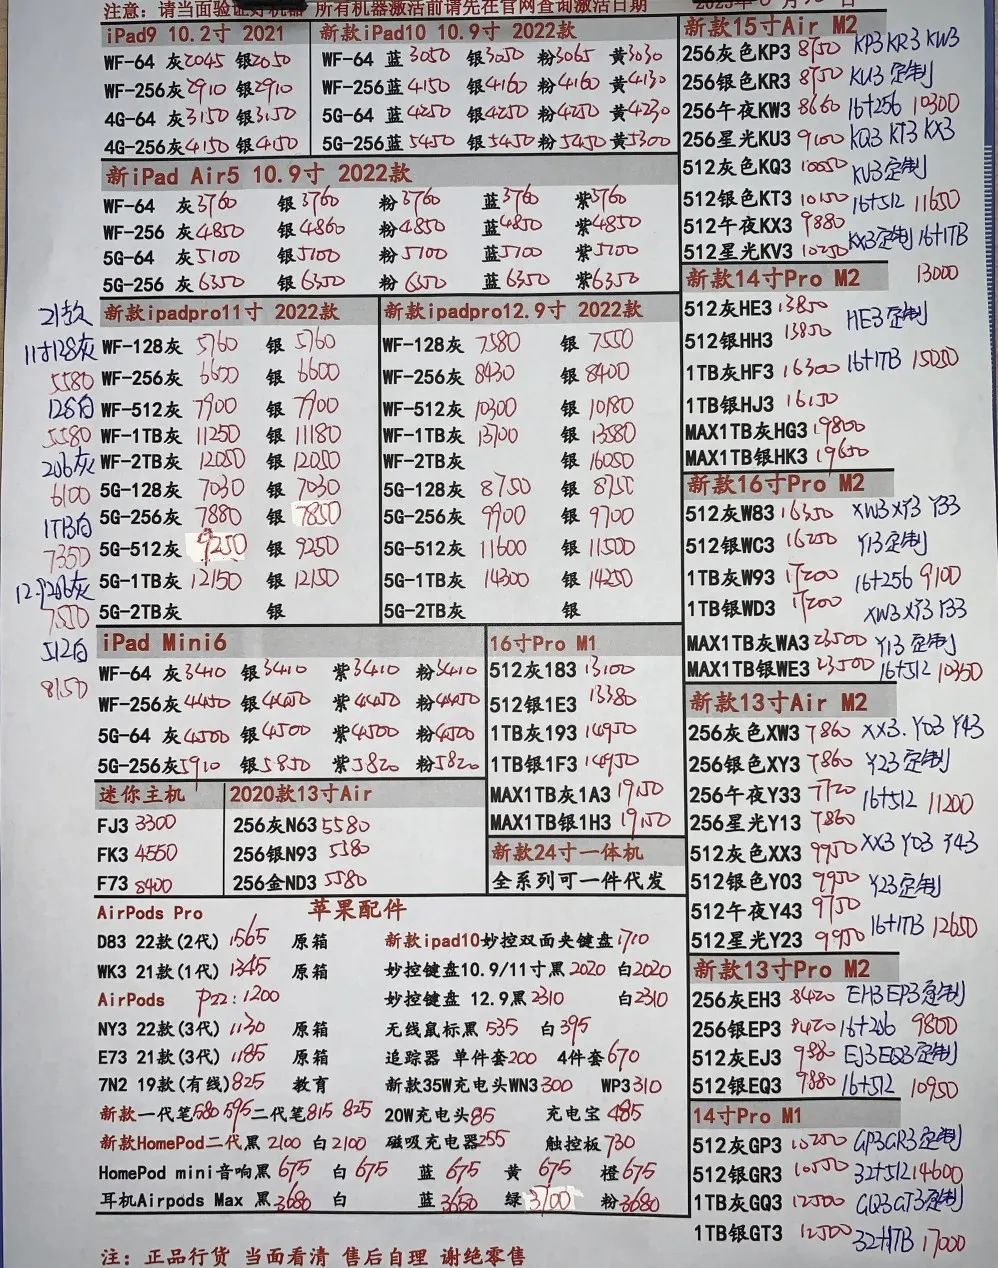 注意：请当面验证好机器 所有机器激活前请先在官网查询激活日期
iPad9 10.2寸 2021
WF-64 灰2045 银2050
WF-256灰2910 银2910
4G-64 灰3150 银3150
4G-256灰4150 银4150
新款iPad10 10.9寸 2022款
WF-64 蓝3050 银3050 粉3065 黄3030
WF-256蓝4150 银4160 粉4160 黄4130
5G-64 蓝4250 银4250 粉4250 黄4230
5G-256蓝5450 银5450 粉5450 黄5300
新iPad Air5 10.9寸 2022款
WF-64 灰3760 银3760 粉3760 蓝3760 紫3760
WF-256 灰4850 银4860 粉4850 蓝4850 紫4850
5G-64 灰5100 银5100 粉5100 蓝5100 紫5200
5G-256 灰6350 银6350 粉 蓝6350 紫6350
21款
11寸128灰
5580
128白
5580
256灰
6100
1TB白
7350
12.9256灰
7550
512白
8150
新款ipadpro11寸 2022款
WF-128灰 5760 银 5760
WF-256灰 6600 银 6600
WF-512灰 7900 银 7900
WF-1TB灰 11250 银 11180
WF-2TB灰 12050 银 12050
5G-128灰 7030 银 7030
5G-256灰 7880 银 7850
5G-512灰 9250 银 9250
5G-1TB灰 12150 银 12150
5G-2TB灰 银
新款ipadpro12.9寸 2022款
WF-128灰 7580 银 7550
WF-256灰 8430 银 8400
WF-512灰 10300 银 10180
WF-1TB灰 13700 银 13580
WF-2TB灰 银 16050
5G-128灰 8750 银 8750
5G-256灰 9900 银 9700
5G-512灰 11600 银 11500
5G-1TB灰 14300 银 14250
5G-2TB灰 银
iPad Mini6
WF-64 灰3410 银3410 紫3410 粉3410
WF-256灰4450 银4450 紫4450 粉4450
5G-64 灰4500 银4500 紫4500 粉4500
5G-256灰5910 银5850 紫5820 粉5820
16寸Pro M1
512灰183 13100
512银1E3 13380
1TB灰193 14950
1TB银1F3 14950
MAX1TB灰1A3 19150
MAX1TB银1H3 19150
新款24寸一体机
全系列可一件代发
迷你主机
FJ3 3300
FK3 4550
F73 8400
2020款13寸Air
256灰N63 5580
256银N93 5580
256金ND3 5580
苹果配件
AirPods Pro
D83 22款(2代) 1565 原箱
WK3 21款(1代) 1345 原箱
AirPods P22:1200
NY3 22款(3代) 1130 原箱
E73 21款(3代) 1185 原箱
7N2 19款(有线)825 教育
新款一代笔580 595 二代笔815 825
新款HomePod二代黑2100 白2100
HomePod mini音响黑675 白675 蓝675 黄675 橙675
耳机Airpods Max 黑3680 白 蓝3650 绿3700 粉3680
新款ipad10妙控双面夹键盘1710
妙控键盘10.9/11寸黑2020 白2020
妙控键盘 12.9黑2310 白2310
无线鼠标黑535 白395
追踪器 单件套200 4件套670
新款35W充电头WN3 300 WP3 310
20W充电头85 充电宝485
磁吸充电器255 触控板730
新款15寸Air M2
256灰色KP3 8750 KP3 KR3 KW3
256银色KR3 8750 KU3定制
256午夜KW3 8660 16+256 10300
256星光KU3 9100 KQ3 KT3 KX3
512灰色KQ3 10050 KV3定制
512银色KT3 10150 16+512 11650
512午夜KX3 9880
512星光KV3 10250 KX3定制 16+1TB
13000
新款14寸Pro M2
512灰HE3 13850 HE3定制
512银HH3 13850
1TB灰HF3 16300 16+1TB 15050
1TB银HJ3 16150
MAX1TB灰HG3 19800
MAX1TB银HK3 19650
新款16寸Pro M2
512灰W83 16350 XW3 XY3 Y33
512银WC3 16250 Y13定制
1TB灰W93 17200 16+256 9100
1TB银WD3 17200 XW3 XY3 Y33
MAX1TB灰WA3 23500 Y13定制
MAX1TB银WE3 23500 16+512 10350
新款13寸Air M2
256灰色XW3 7860 XX3. Y03 Y43
256银色XY3 7860 Y23定制
256午夜Y33 7720 16+512 11200
256星光Y13 7860
512灰色XX3 9950 XX3 Y03 Y43
512银色Y03 9950 Y23定制
512午夜Y43 9750 16+1TB 12650
512星光Y23 9950
新款13寸Pro M2
256灰EH3 8420 EH3 EP3定制
256银EP3 8420 16+256 9800
512灰EJ3 9880 EJ3 EQ3定制
512银EQ3 9880 16+512 10950
14寸Pro M1
512灰GP3 10250 GP3 GR3定制
512银GR3 10550 32+512 14600
1TB灰GQ3 12500 GQ3 GT3定制
1TB银GT3 12500 32+1TB 17000
注：正品行货 当面看清 售后自理 谢绝零售